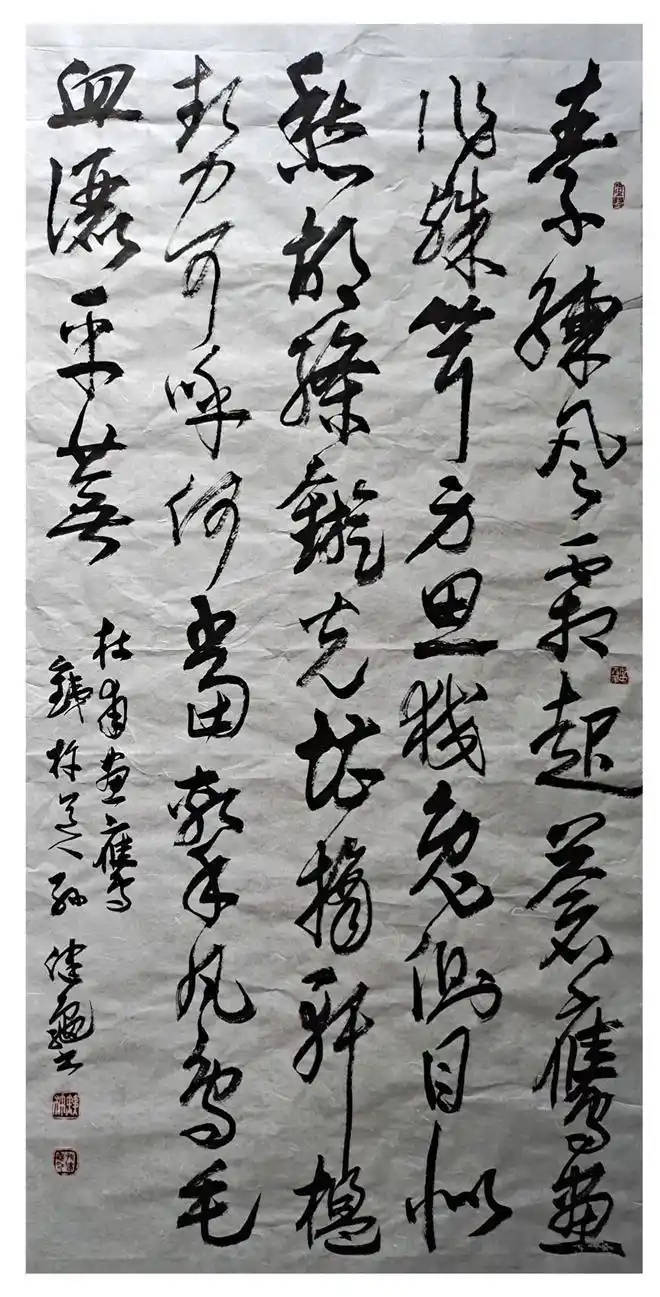 素練風霜起蒼鷹畫
作殊耸身思狡兔側目似
愁胡絛鏇光堪摘軒楹
勢可呼何當擊凡鳥毛
血灑平蕪
杜甫畫鷹
道人孫健書